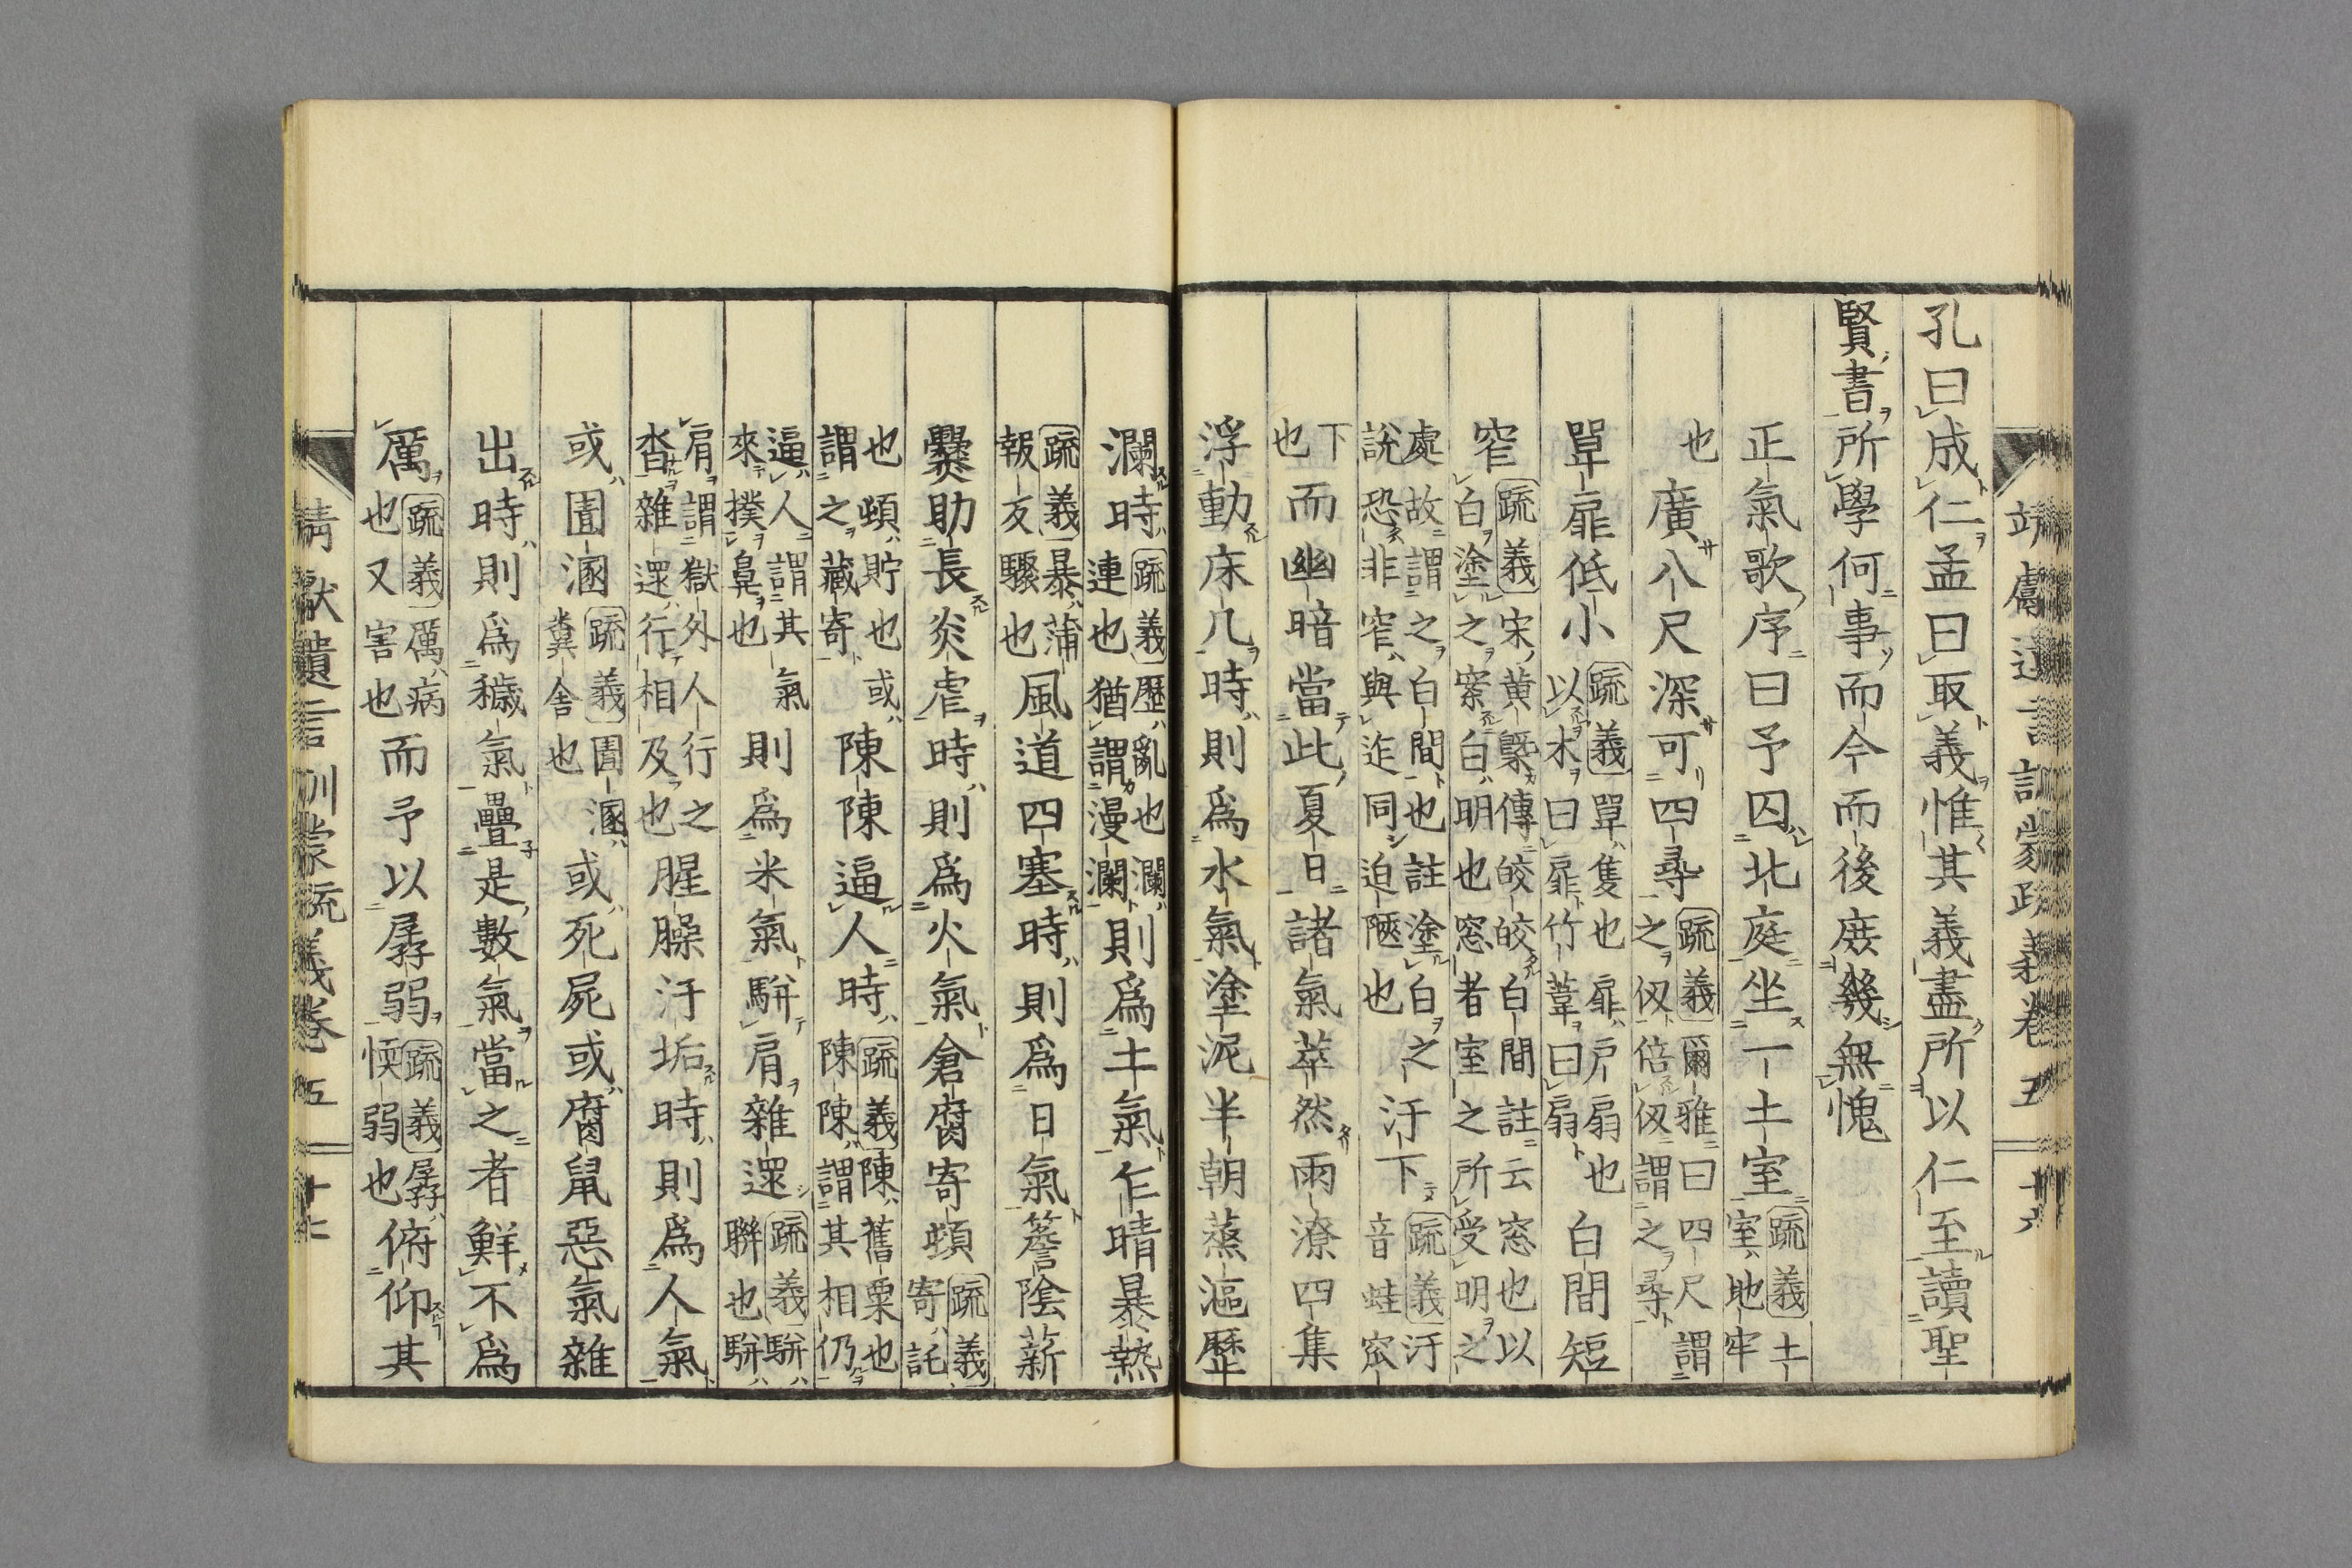 靖獻遺言訓蒙疏義卷五　十六
孔曰成仁孟曰取義惟其義盡所以仁至讀聖
賢書所學何事而今而後庶幾無愧
正氣歌序曰予囚北庭坐一土室疏義土室地牢
也廣八尺深可四尋疏義爾雅曰四尺謂之仞倍仞謂之尋
單扉低小疏義單隻也扉戶扇也以木曰扉竹葦曰扇白間短
窄疏義宋黃槩傳皎皎白間註云窓也以白塗之寮白明也窓者室之所受明之
處故謂之白間也註塗白之説恐非窄與迮同迫陋也汙下疏義汙音蛙窊
下也而幽暗當此夏日諸氣萃然雨潦四集
浮動床几時則爲水氣塗泥半朝蒸漚歷
瀾時疏義歷亂也瀾連也猶謂漫瀾則爲土氣乍晴暴熱
疏義暴蒲報反驟也風道四塞時則爲日氣簷陰薪
爨助長炎虐時則爲火氣倉腐寄頓疏義寄託
也頓貯也或謂之藏寄陳陳逼人時疏義陳舊粟也陳陳謂其相仍
逼人謂其氣來撲鼻也則爲米氣駢肩雜遝疏義駢聯也駢
肩謂獄外人行之沓雜遝行相及也腥臊汙垢時則爲人氣
或圊溷疏義圊溷糞舍也或死屍或腐鼠惡氣雜
出時則爲穢氣疊是數氣當之者鮮不爲
厲疏義厲病也又害也而予以孱弱疏義孱愞弱也俯仰其
靖獻遺言訓蒙疏義卷五　十七